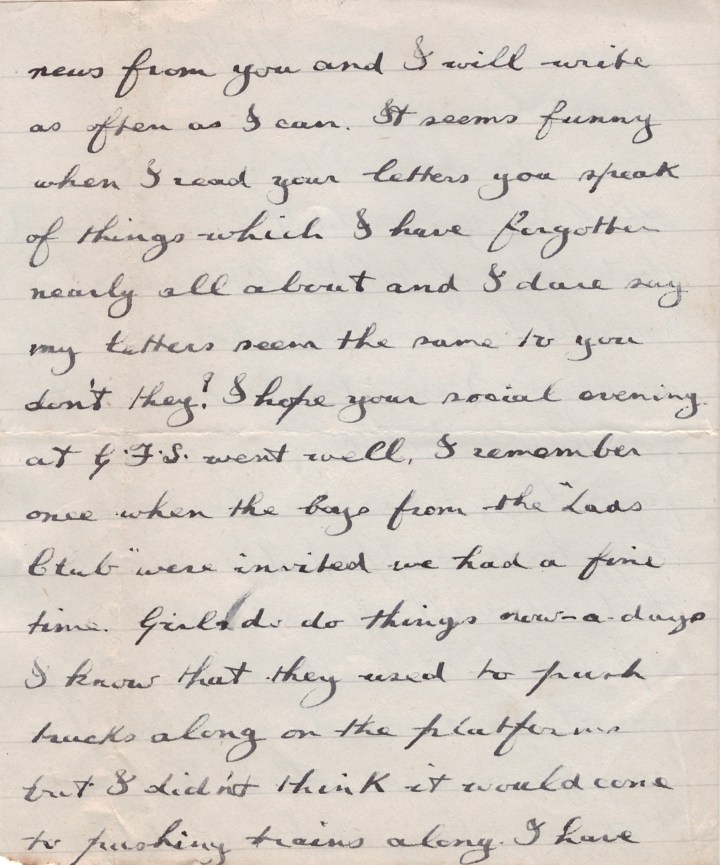 news from you and I will write
as often as I can. It seems funny
when I read your letters you speak
of things which I have forgotten
nearly all about and I dare say
my letters seem the same to you
don't they? I hope your social evening
at G.F.S. went well, I remember
once when the boys from the "Lads
Club" were invited we had a fine
time. Girls do do things now-a-days
I know that they used to push
trucks along on the platforms
but I didn't think it would come
to pushing trains along. I have